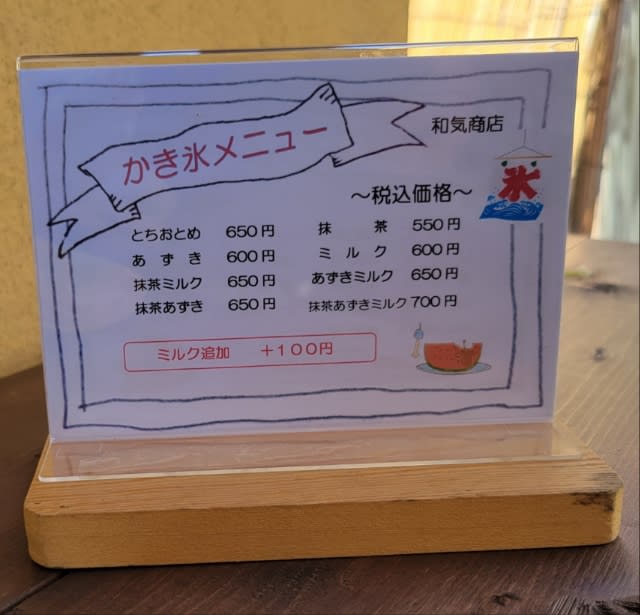 かき氷メニュー
和気商店
氷
～税込価格～
とちおとめ 650円 抹 茶 550円
あ ず き 600円 ミ ル ク 600円
抹茶ミルク 650円 あずきミルク 650円
抹茶あずき 650円 抹茶あずきミルク 700円
ミルク追加 ＋１００円